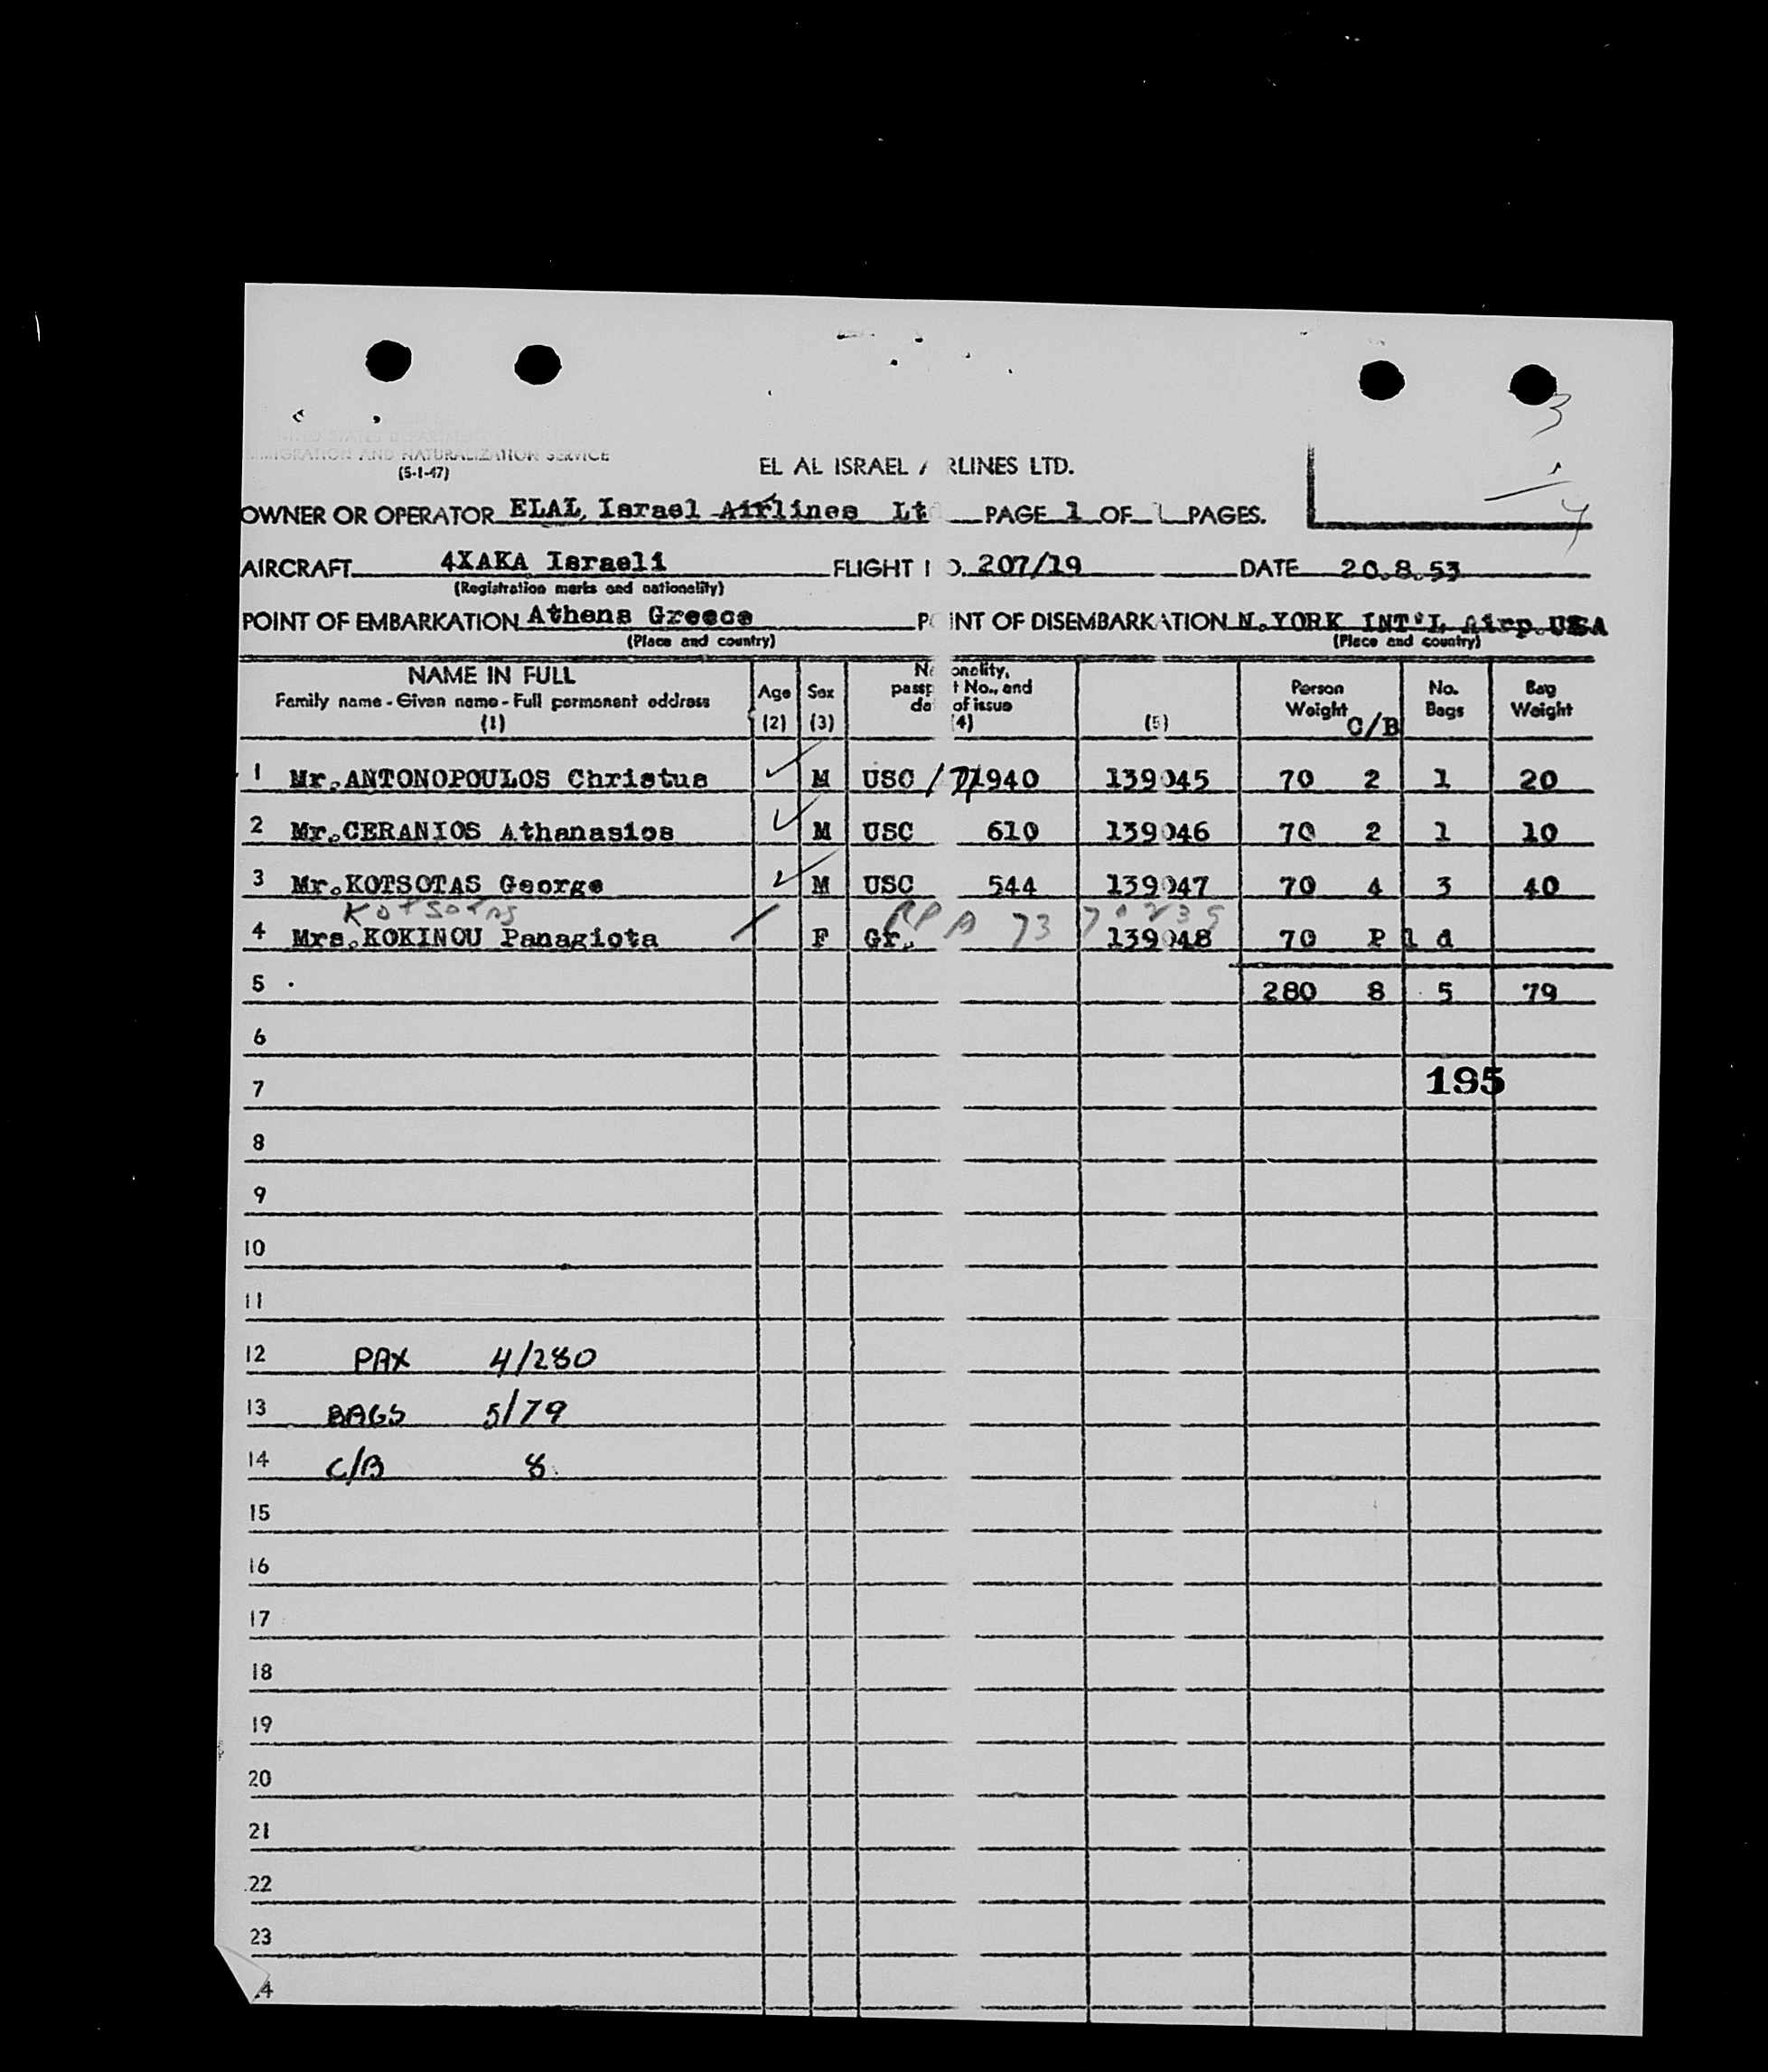 3
IMMIGRATION AND NATURALIZATION SERVICE
(5-1-47)
EL AL ISRAEL A RLINES LTD.
1
OWNER OR OPERATOR ELAL Israel Airlines Lt PAGE 1 OF 1 PAGES.
4
AIRCRAFT 4XAKA Israeli FLIGHT NO. 207/19 DATE 20.8.53
(Registration marks and nationality)
POINT OF EMBARKATION Athens Greece POINT OF DISEMBARKATION N.YORK INT'L Airp.USA
(Place and country) (Place and country)
NAME IN FULL
Family name - Given name - Full permanent address
(1)
Age
(2)
Sex
(3)
Nationality,
passport No., and
date of issue
(4)
(5)
Person
Weight C/B
No.
Bags
Bag
Weight
1 Mr.ANTONOPOULOS Christus M USC / 71940 139045 70 2 1 20
2 Mr.CERANIOS Athanasios M USC 610 139046 70 2 1 10
3 Mr.KOTSOTAS George M USC 544 139047 70 4 3 40
Kotsotas
4 Mrs.KOKINOU Panagiota F Gr. 139048 70 P 1 d
5 280 8 5 79
6
7 195
8
9
10
11
12 PAX 4/280
13 BAGS 5/79
14 C/B 8
15
16
17
18
19
20
21
22
23